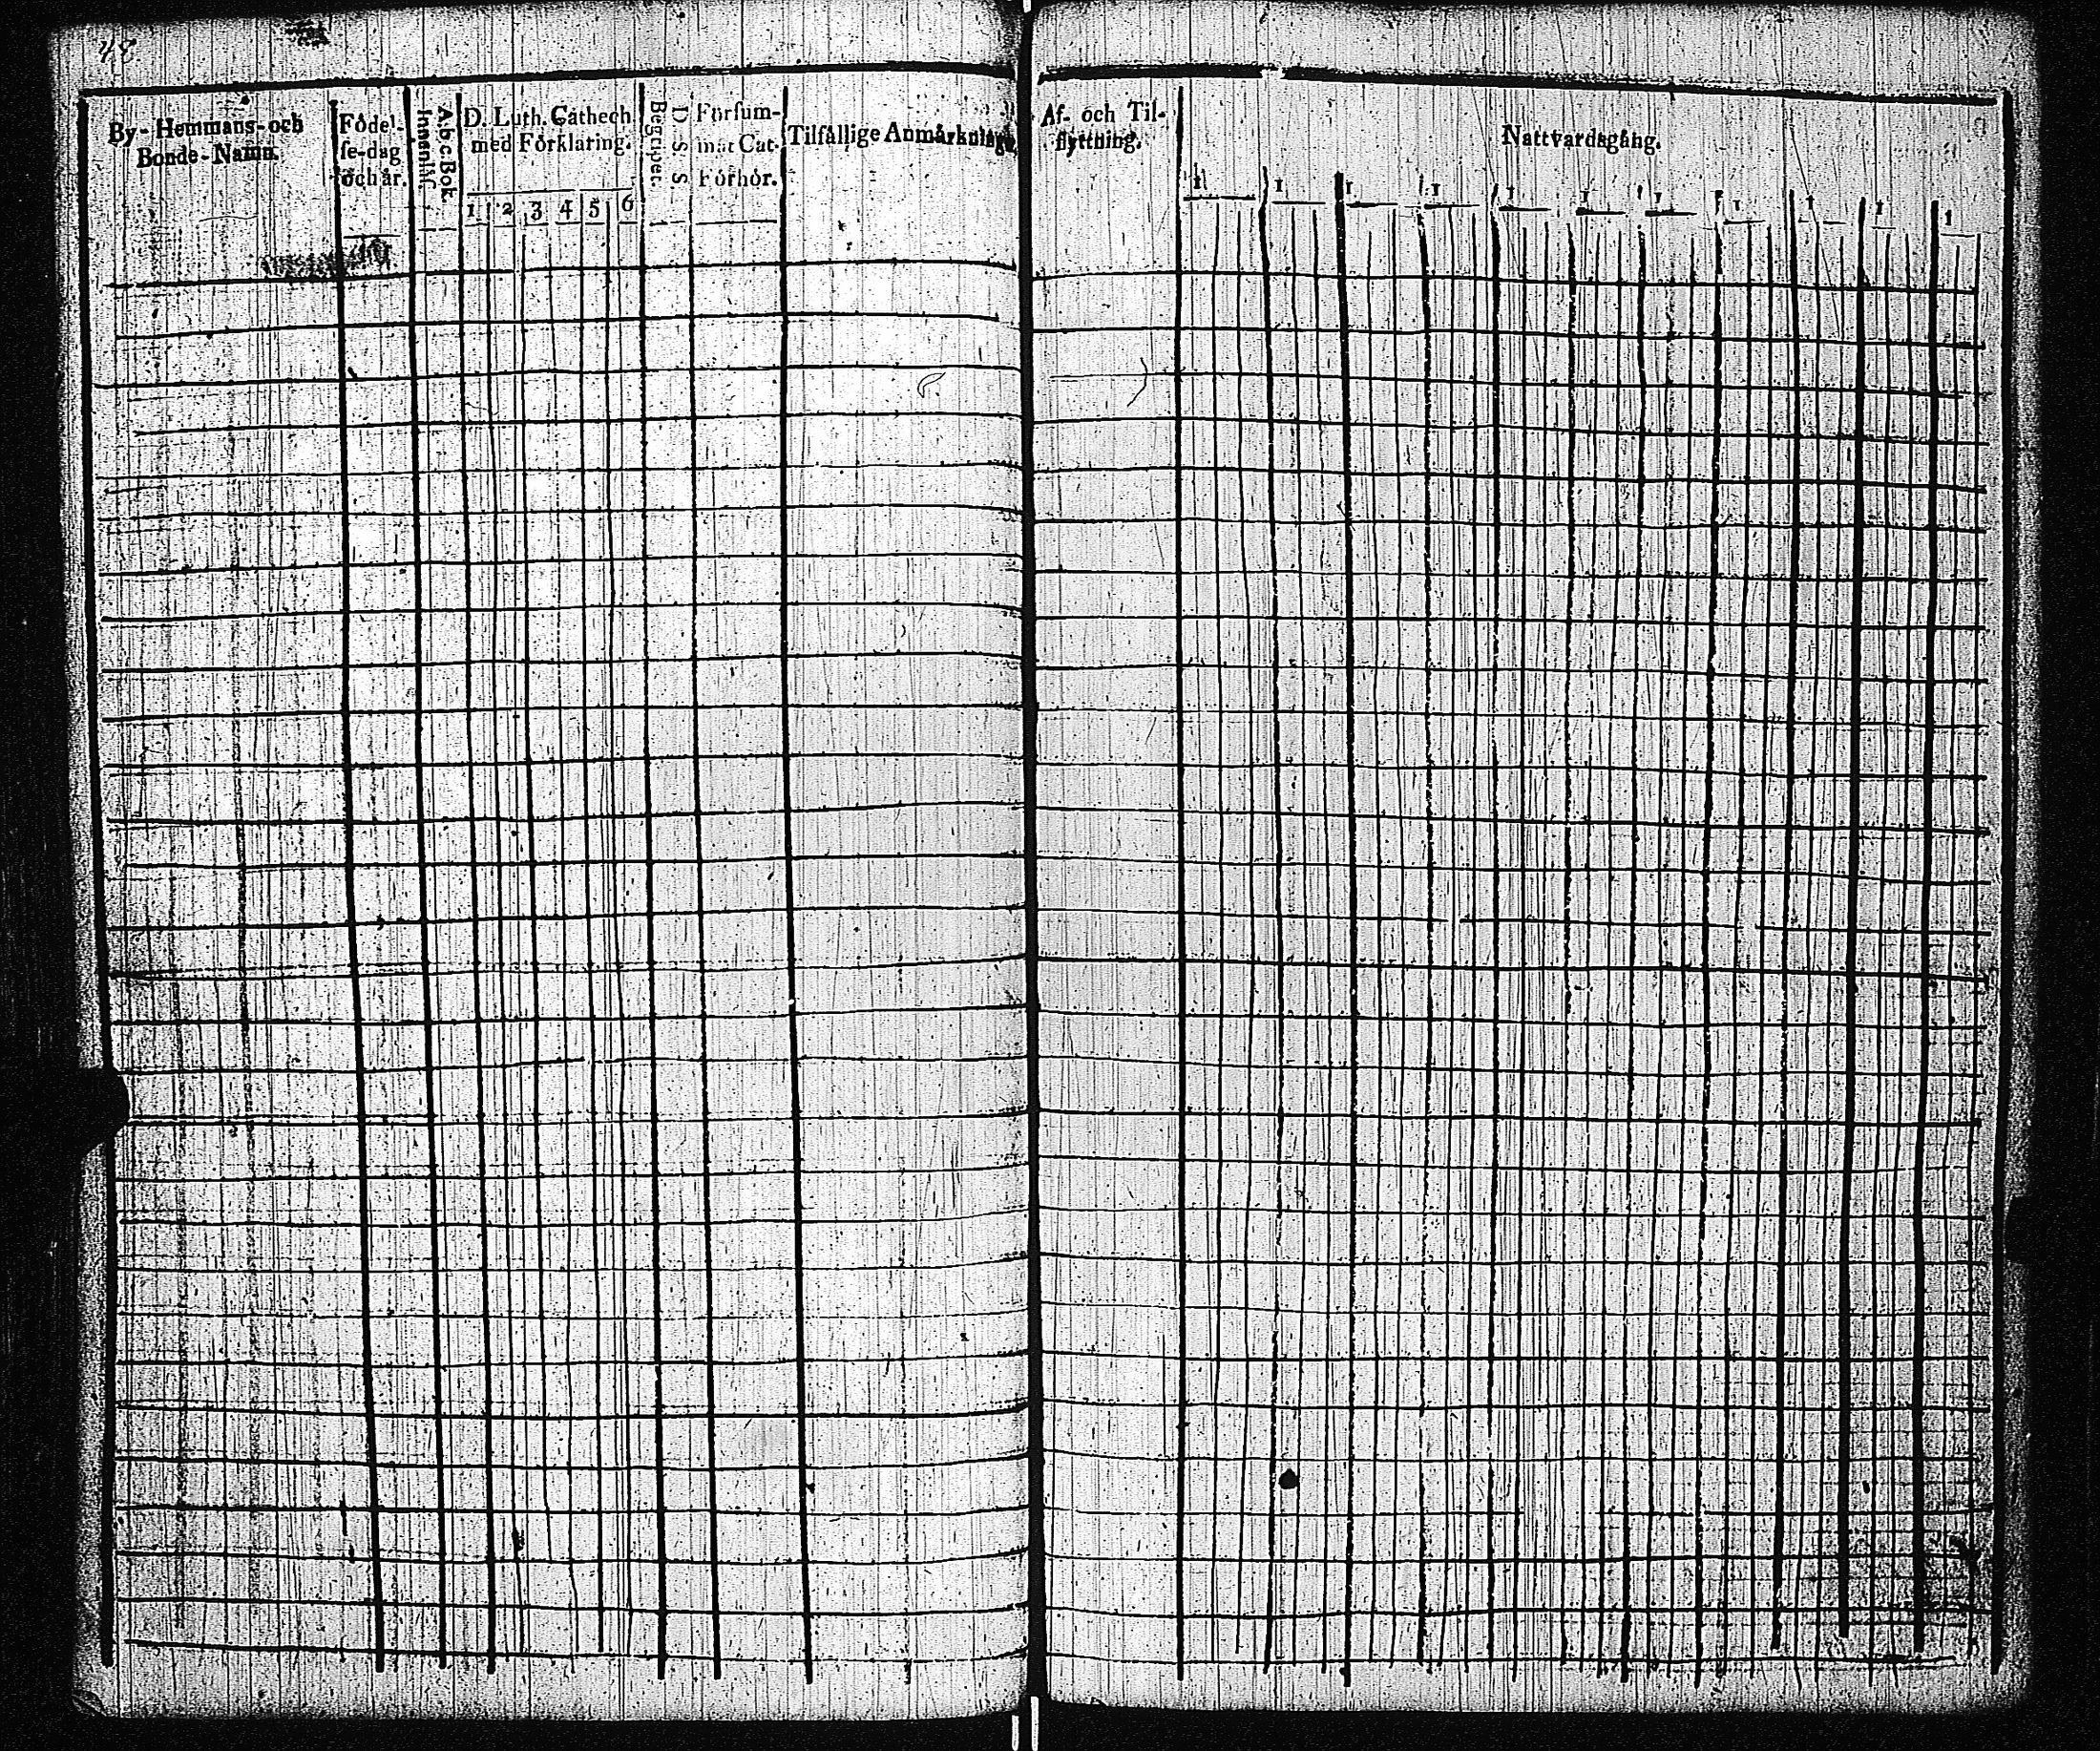 48
By- Hemmans- och
Bonde-Namn.
Födel-
se-dag
och år.
Abc Bok
Innanläs.
D. Luth. Cathech.
med Förklaring.
1 2 3 4 5 6
Begreper.
D. S. S.
Försum-
mat Cat.
Förhör.
Tilfällige Anmärkningar
Af- och Til-
flyttning.
Nattvardsgång.
1 1 1 1 1 1 1 1 1 1 1